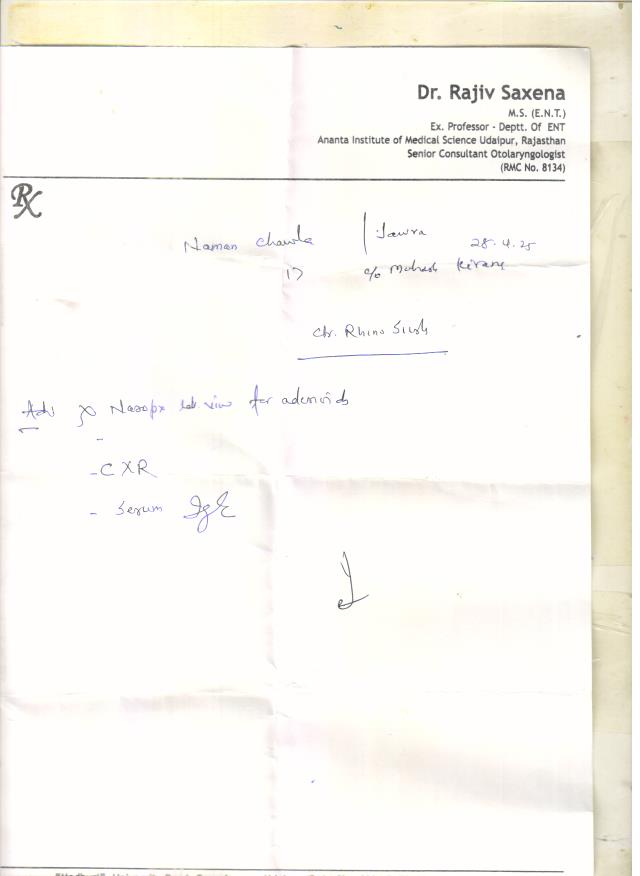 Dr. Rajiv Saxena
M.S. (E.N.T.)
Ex. Professor - Deptt. Of ENT
Ananta Institute of Medical Science Udaipur, Rajasthan
Senior Consultant Otolaryngologist
(RMC No. 8134)
Rx
Naman Chawla | Jawra 28.4.25
17 c/o Mahesh
Chr. Rhino
Adv Nasopx lat view for adenoids
- CXR
- Serum IgE